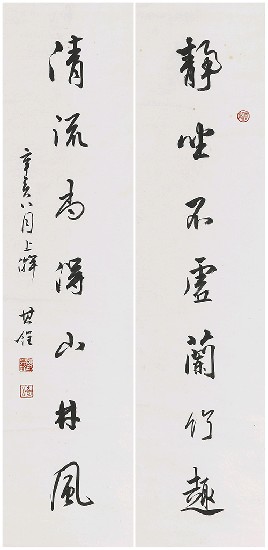 静坐不虚兰竹趣
清流尚得山林风
辛亥八月上澣